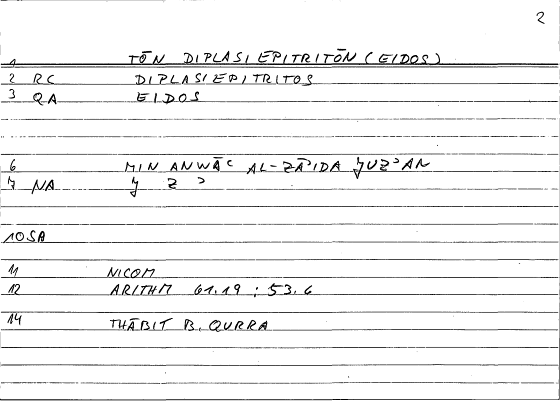 2
1 TŌN DIPLASIEPITRITŌN (EIDOS)
2 RC DIPLASIEPITRITOS
3 QA EIDOS
6 MIN ANWĀʿ AL-ZĀʾIDA ǦUZʾAN
7 NA Ǧ Z ʾ
10 SA
11 NICOM
12 ARITHM 61.19 ; 53.6
14 THĀBIT B. QURRA